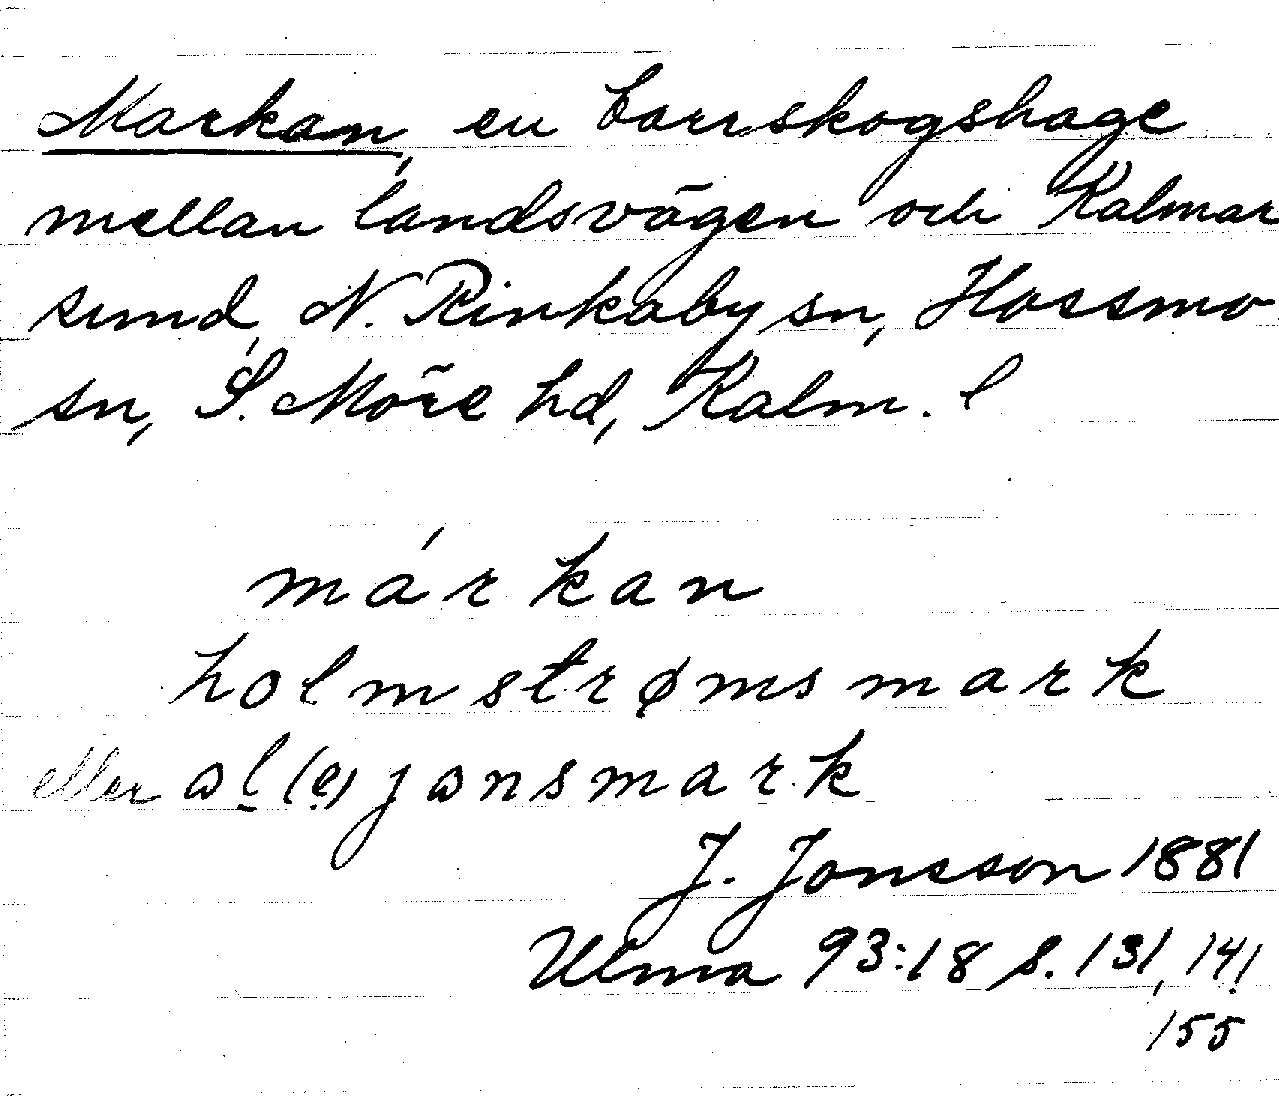 Markan, en barrskogshage
mellan landsvägen och Kalmar
sund, N. Rinkaby sn, Hossmo
sn, S. Möre hd, Kalm. l
márkan
holmstrømsmark
eller ɷl(e)jɷnsmark
J. Jonsson 1881
Ulma 93:18 s. 131, 141
155